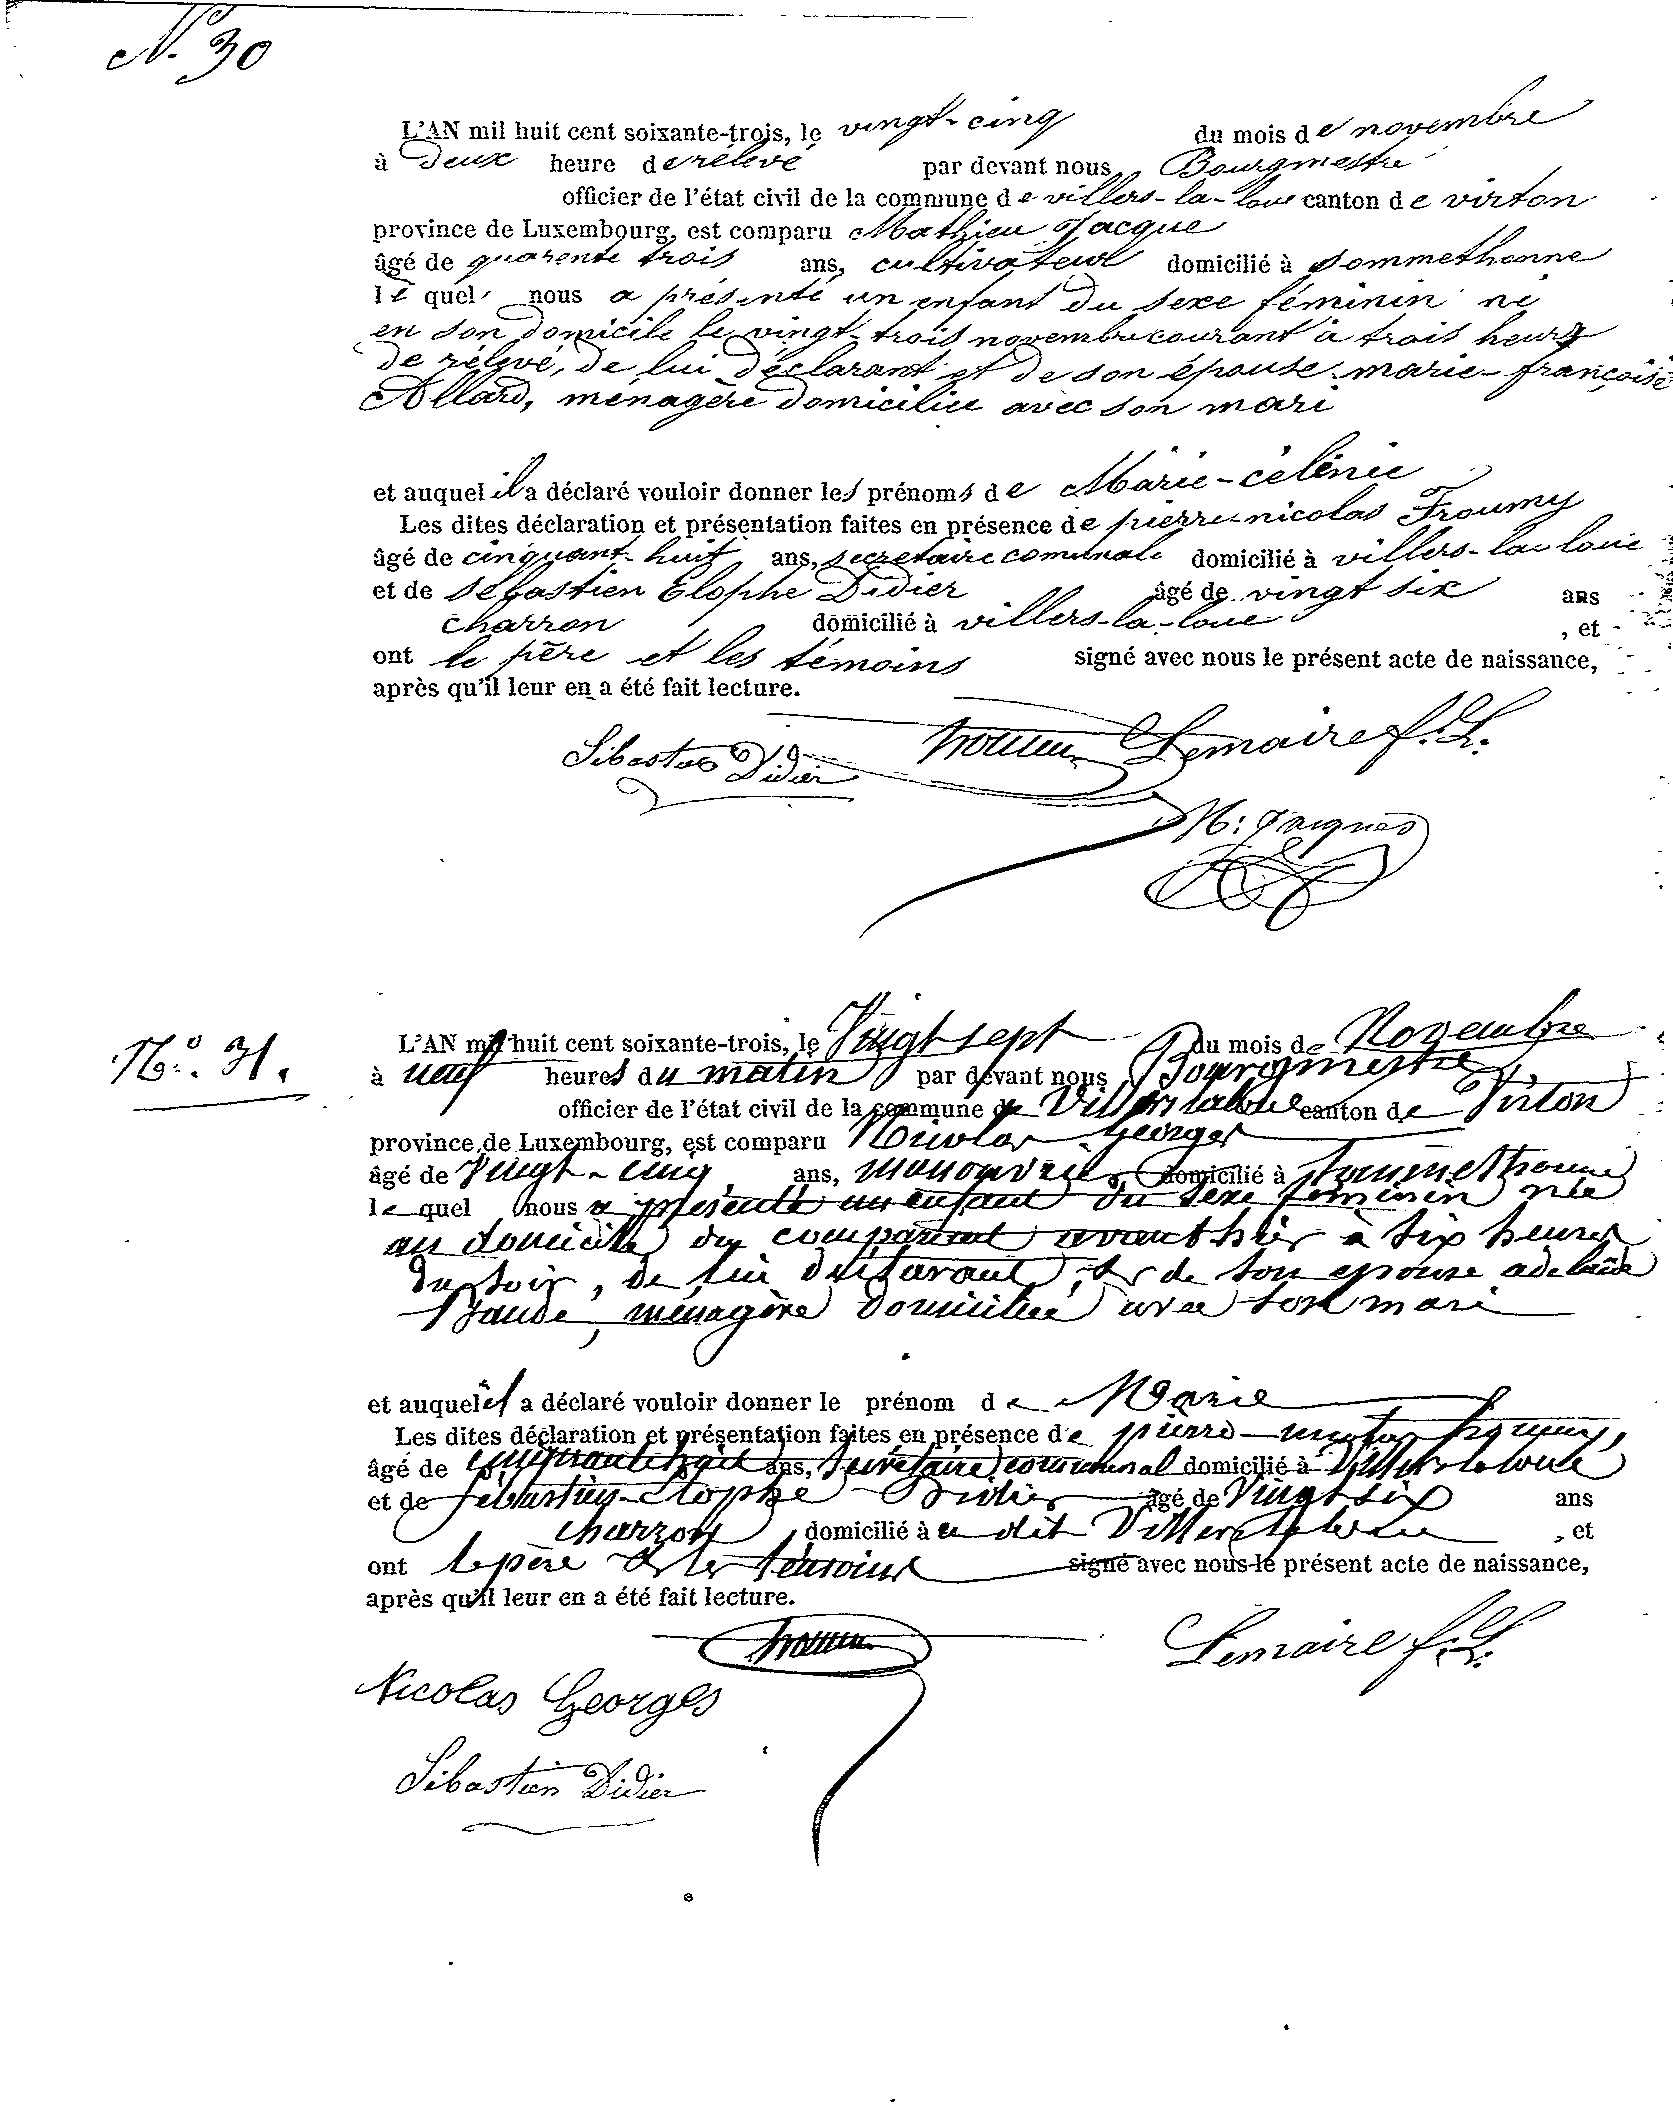 N. 30
L'AN mil huit cent soixante-trois, le vingt-cinq du mois de novembre
à deux heure de rélévé par devant nous Bourgmestre
officier de l'état civil de la commune de villers-la-loue canton de virton
province de Luxembourg, est comparu Mathieu Jacque
âgé de quarente trois ans, cultivateur domicilié à sommethonne
le quel nous a présenté un enfant du sexe féminin né
en son domicile le vingt-trois novembre courant à trois heures
de rélevé, de lui déclarant et de son épouse marie-françoise
Allard, ménagère domiciliée avec son mari
et auquel il a déclaré vouloir donner les prénoms de Marie-célinie
Les dites déclaration et présentation faites en présence de pierre-nicolas Froumy
âgé de cinquant-huit ans, secretaire comunale domicilié à villers-la loue
et de sébastien Elophe Didier âgé de vingt six ans
charron domicilié à villers-la-loue , et
ont le père et les témoins signé avec nous le présent acte de naissance,
après qu'il leur en a été fait lecture.
Sébastien Didier Lemaire f. L.
M: Jacques
No. 31.
L'AN mil huit cent soixante-trois, le Vingt sept du mois de Novembre
à neuf heures du matin par devant nous Bourgmestre,
officier de l'état civil de la commune de Villers laloue canton de Virton
province de Luxembourg, est comparu Nicolas Georges
âgé de Vingt-cinq ans, manouvrier domicilié à Sommethonne
le quel nous a présenté un enfant du sexe féminin née
au domicile du comparant avant hier à six heures
du soir, de lui déclarant, & de son épouse adelaïde
ménagère domiciliée avec son mari
et auquel il a déclaré vouloir donner le prénom de Marie
Les dites déclaration et présentation faites en présence de pierre-nicolas froumy,
âgé de cinquante huit ans, Secrétaire communal domicilié à Villers laloue
et de Sébastien-Elophe Didier âgé de Vingt six ans
charron domicilié à u dit Villers laloue , et
ont le père & les témoins signé avec nous le présent acte de naissance,
après qu'il leur en a été fait lecture.
Lemaire f. L.
Nicolas Georges
Sébastien Didier